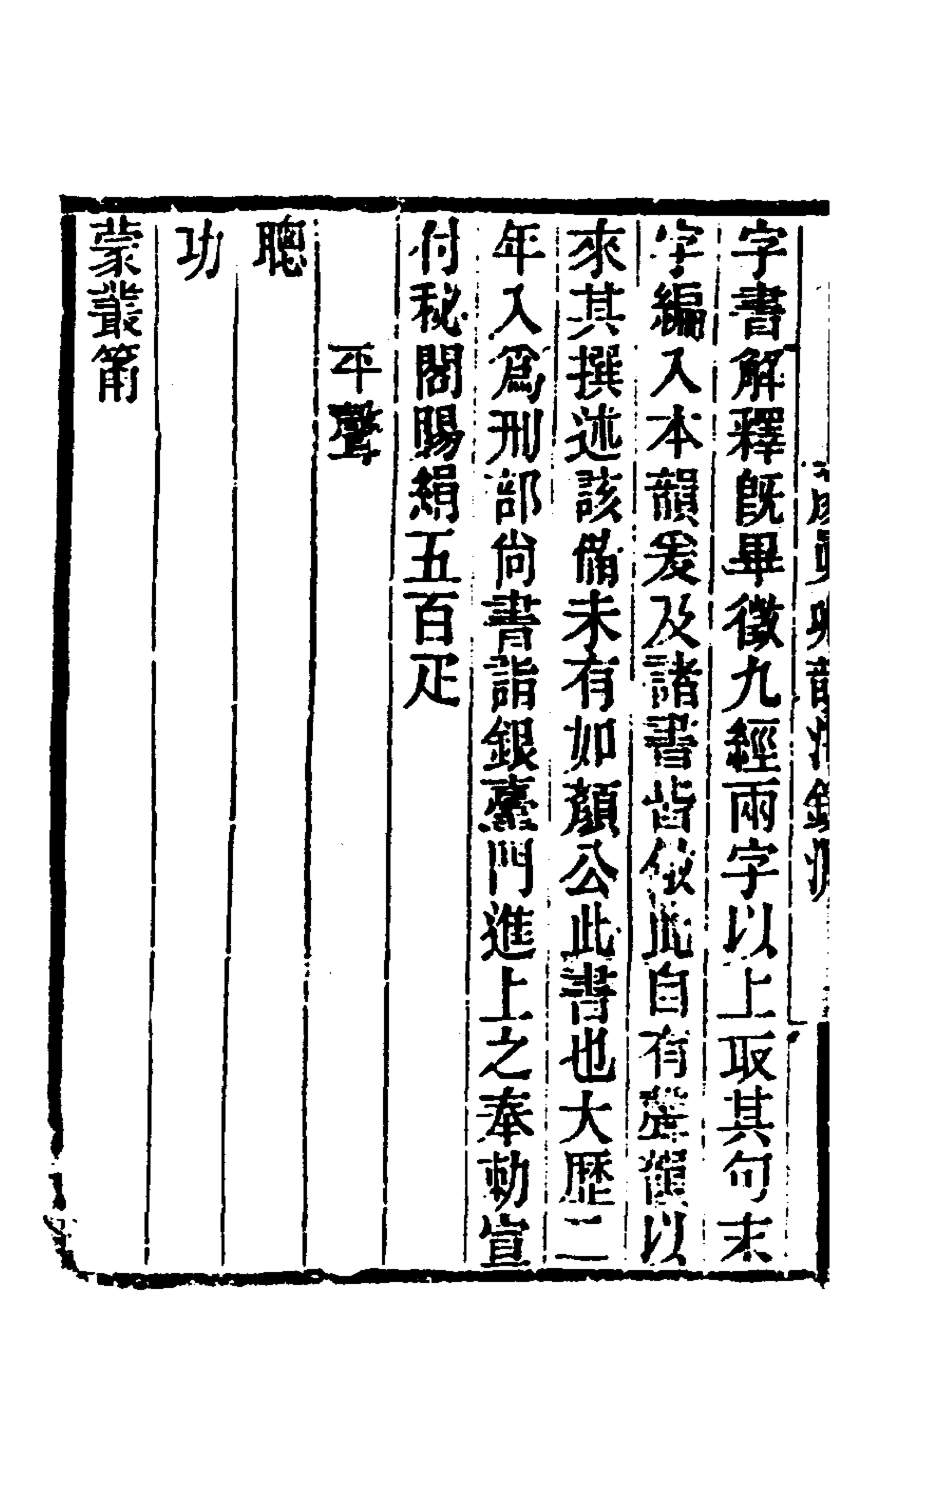 字書解釋既畢徵九經兩字以上取其句末
字編入本韻爰及諸書皆倣此自有聲韻以
來其撰述該備未有如顏公此書也大歷二
年入爲刑部尙書詣銀臺門進上之奉勅宣
付秘閣賜絹五百疋
平聲
聰
功
蒙叢筩